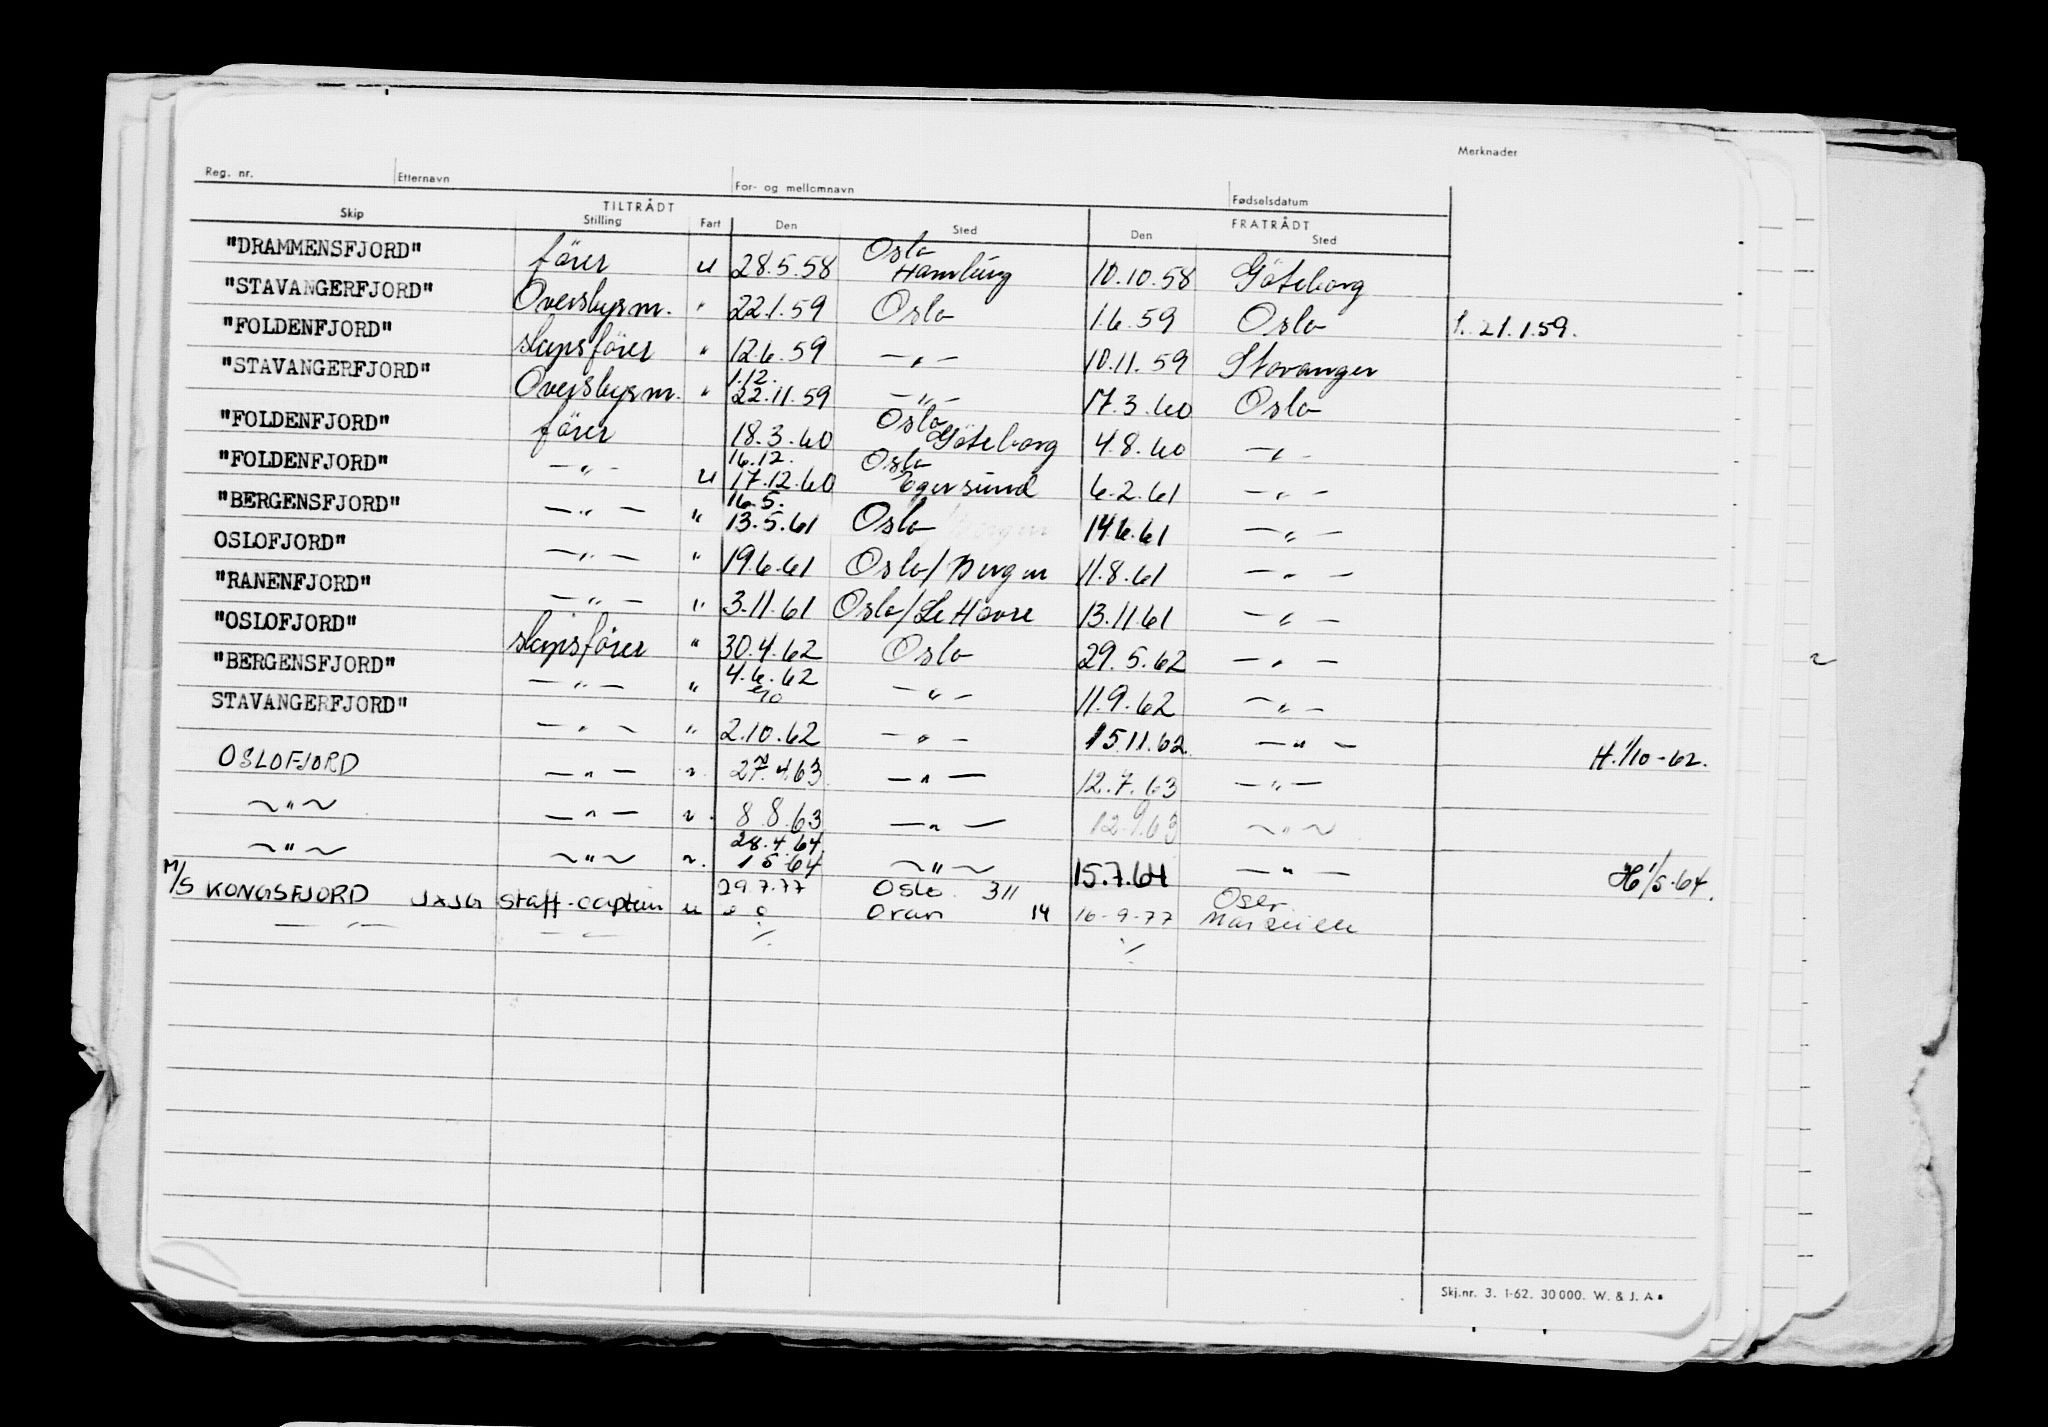 Merknader
Reg. nr. Etternavn For- og mellomnavn Fødselsdatum
TILTRÅDT FRATRÅDT
Skip Stilling Fart Den Sted Den Sted
"DRAMMENSFJORD" förer u 28.5.58 Oslo Hamburg 10.10.58 Göteborg
"STAVANGERFJORD" Overstyrm. " 22.1.59 Oslo 1.6.59 Oslo 1. 21.1.59.
"FOLDENFJORD" skipsförer " 12.6.59 — " — 10.11.59 Stavanger
"STAVANGERFJORD" Overstyrm. " 1.12. 22.11.59 — " — 17.3.60 Oslo
"FOLDENFJORD" förer 18.3.60 Oslo Göteborg 4.8.60 — " —
"FOLDENFJORD" — " — u 16.12. 17.12.60 Oslo Egersund 6.2.61 — " —
"BERGENSFJORD" — " — " 16.5. 13.5.61 Oslo 14.6.61 — " —
OSLOFJORD" — " — " 19.6.61 Oslo/Bergen 11.8.61 — " —
"RANENFJORD" — " — " 3.11.61 Oslo/Le Havre 13.11.61 — " —
"OSLOFJORD" skipsförer " 30.4.62 Oslo 29.5.62 — " —
"BERGENSFJORD" — " — " 4.6.62 — " — 11.9.62 — " —
STAVANGERFJORD" — " — " 2.10.62 — " — 15.11.62 — " — H. 1/10-62.
OSLOFJORD — " — " 27.4.63 — " — 12.7.63 — " —
— " — — " — " 8.8.63 — " — 12.9.63 — " —
— " — — " — " 28.4.64 1 5 64 — " — 15.7.64 — " — H 1/5-64.
M/S KONGSFJORD JXJG staff-captain u 29.7.77 Oslo 311 Oran 14 16-9-77 Oslo Marseille
— " — — " — ./. ./.
Skj.nr. 3. 1-62. 30000. W. & J. A.